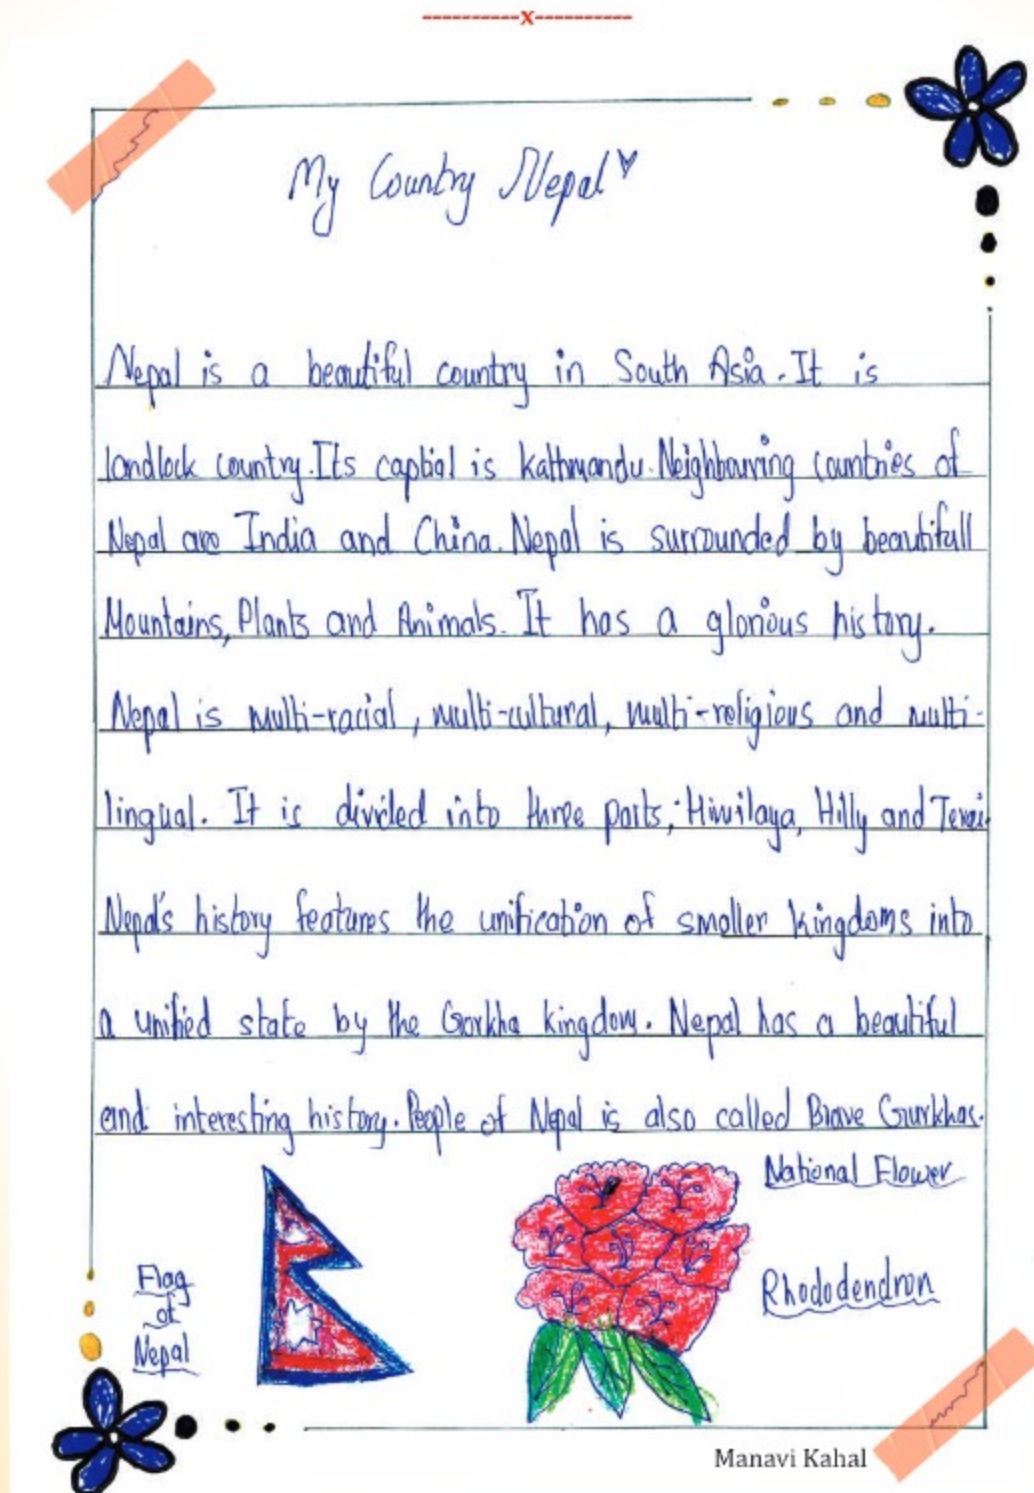 ----------x----------
My Country Nepal
Nepal is a beautiful country in South Asia. It is
landlock country. Its captial is kathmandu. Neighbouring countries of
Nepal are India and China. Nepal is surrounded by beautifull
Mountains, Plants and Animals. It has a glorious history.
Nepal is multi-racial, multi-cultural, multi-religious and multi-
lingual. It is divided into three parts; Himilaya, Hilly and Terai.
Nepal's history features the unification of smaller kingdoms into
a unified state by the Gorkha kingdom. Nepal has a beautiful
and interesting history. People of Nepal is also called Brave Gurkhas.
National Flower
Rhododendron
Flag
of
Nepal
Manavi Kahal